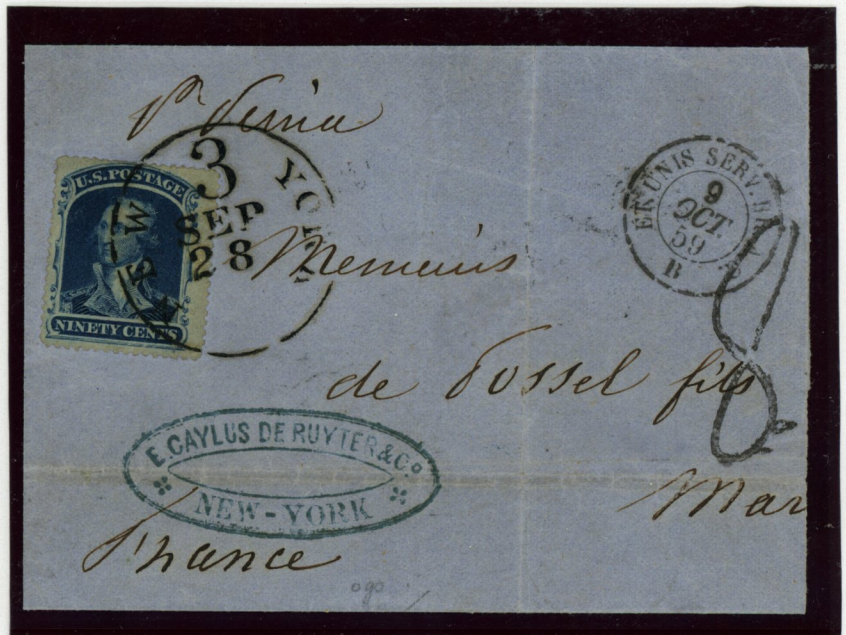 pr Persia
U.S. POSTAGE
NINETY CENTS
NEW YORK
3
SEP
28
ET. UNIS SERV. BR.
9
OCT.
59
B
Messieurs
de Possel fils
8
E. CAYLUS DE RUYTER & Co.
NEW-YORK
Mar
France